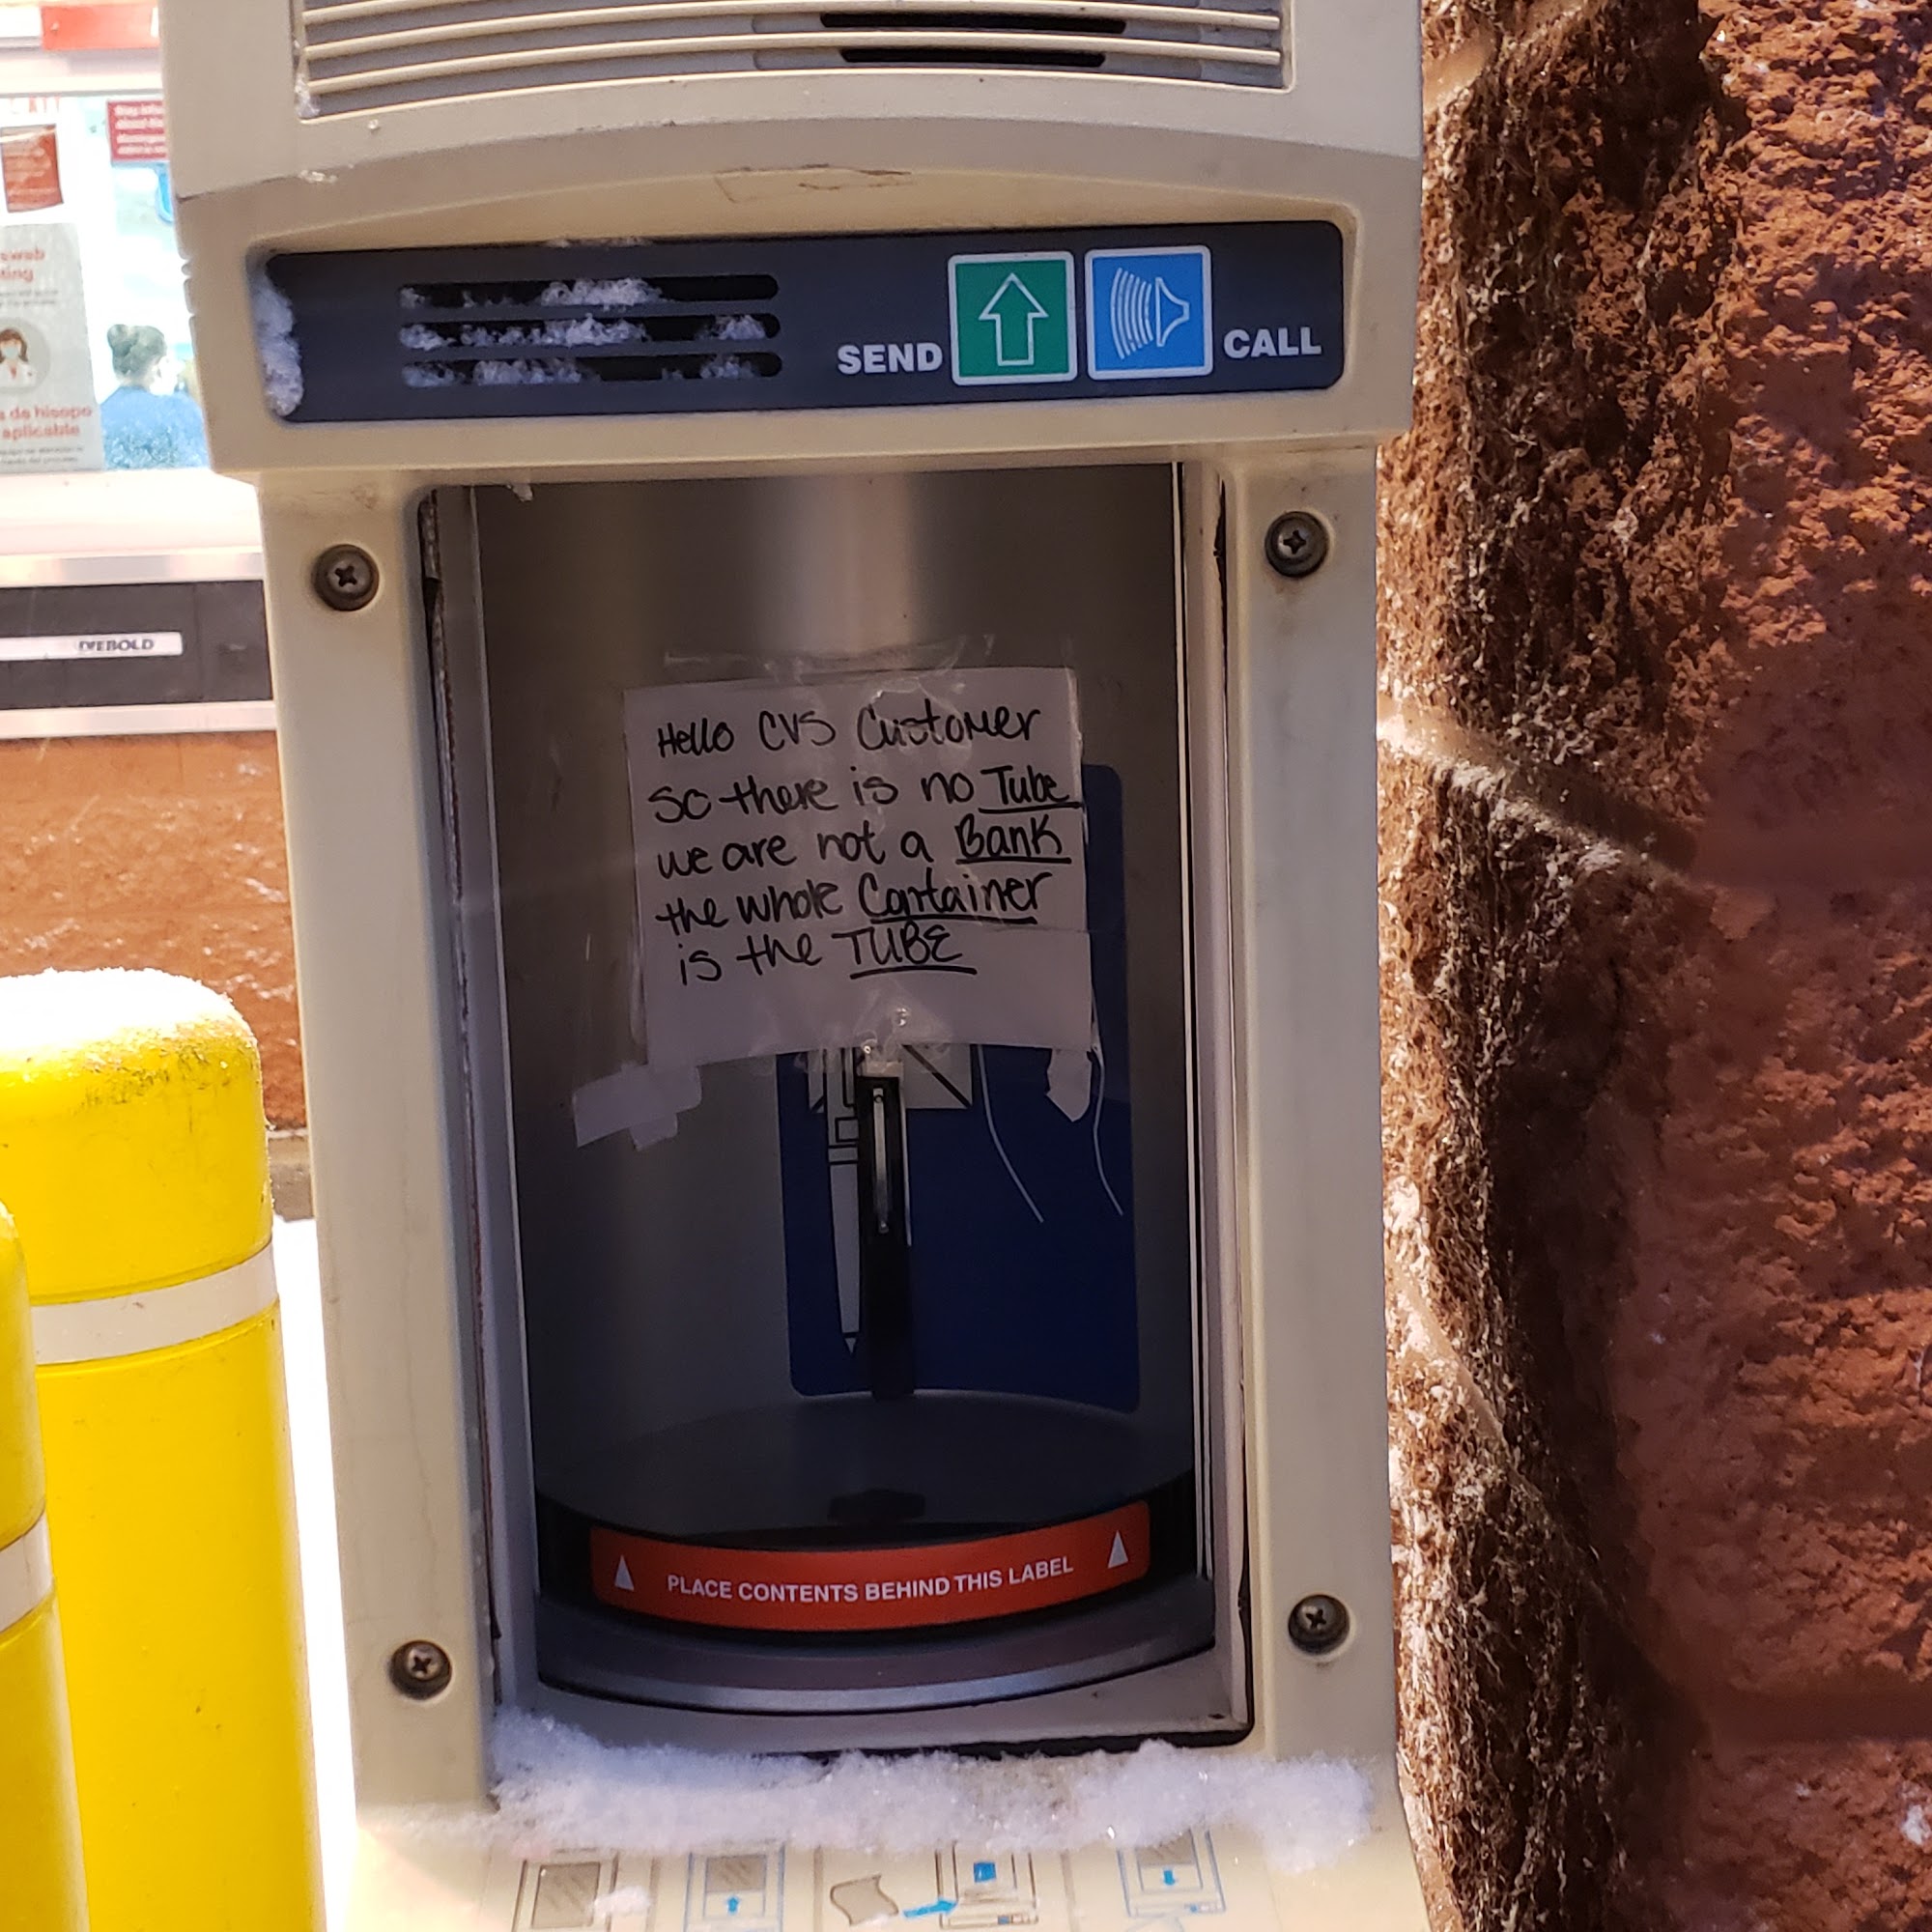 SEND
CALL
DIEBOLD
Hello CVS Customer
So there is no Tube
we are not a Bank
the whole Container
is the TUBE
PLACE CONTENTS BEHIND THIS LABEL
de hisopo
aplicable